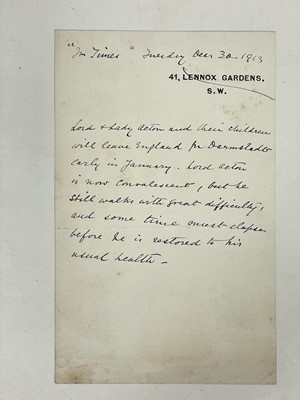 "The Times" Tuesday Decr 30. 1913
41, LENNOX GARDENS.
S.W.
Lord & Lady Acton and their children
will leave England for Darmstadt
early in January. Lord Acton
is now convalescent, but he
still walks with great difficulty,
and some time must elapse
before he is restored to his
usual health –